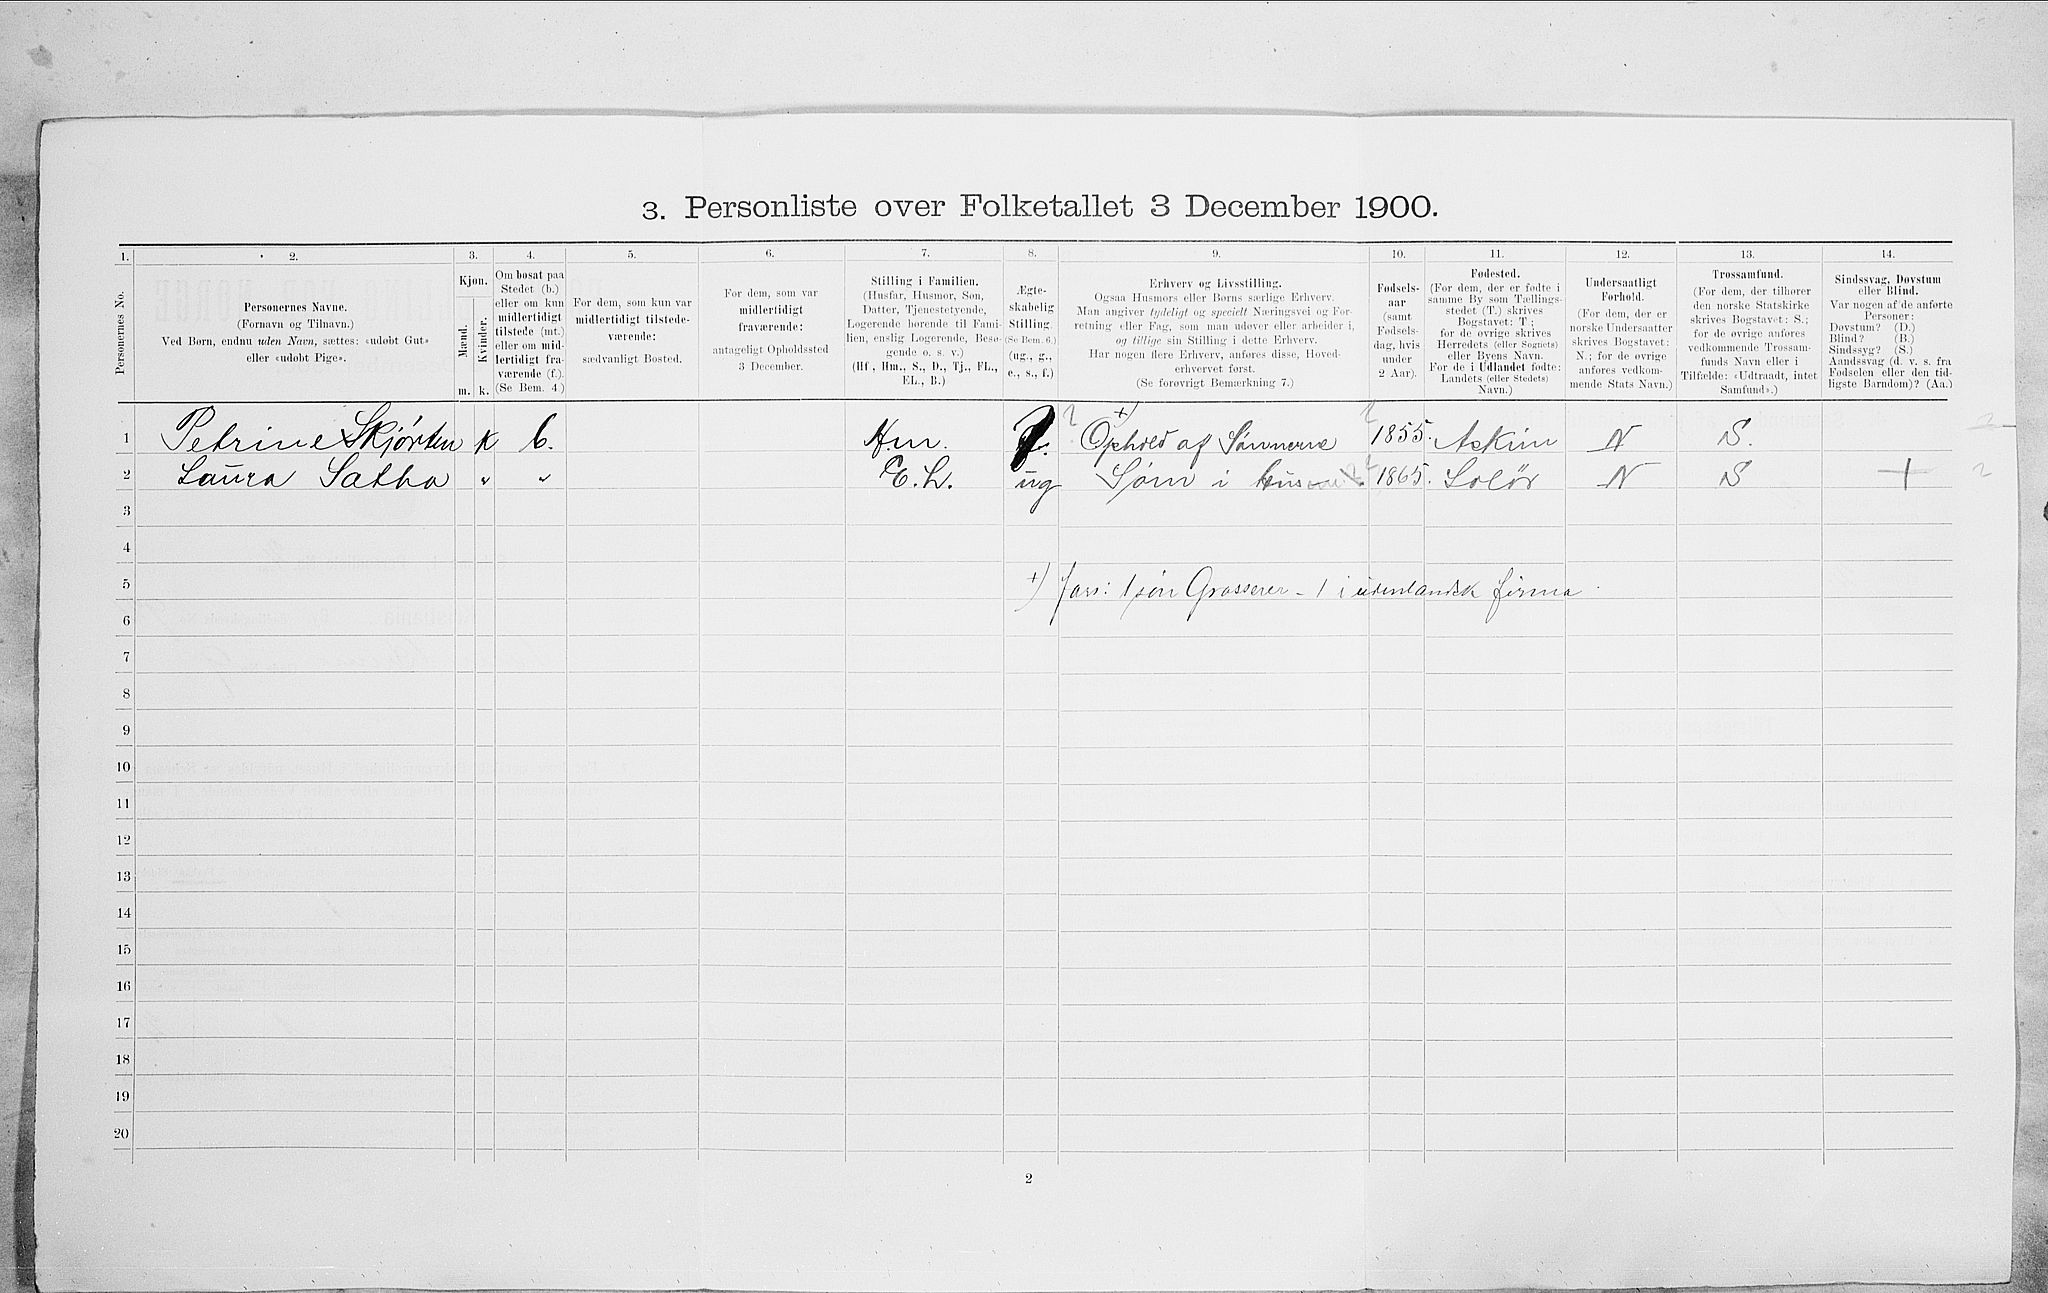 3. Personliste over Folketallet 3 December 1900.
1. 2. 3. 4. 5. 6. 7. 8. 9. 10. 11. 12. 13. 14.
Personernes No.
Personernes Navne.
(Fornavn og Tilnavn.)
Ved Børn, endnu uden Navn, sættes: «udøbt Gut»
eller «udøbt Pige».
Kjøn.
Mænd.
Kvinder.
m. k.
Om bosat paa
Stedet (b.)
eller om kun
midlertidigt
tilstede (mt.)
eller om mid-
lertidigt fra-
værende (f.).
(Se Bem. 4.)
For dem, som kun var
midlertidigt tilstede-
værende:
sædvanligt Bosted.
For dem, som var
midlertidigt
fraværende:
antageligt Opholdssted
3 December.
Stilling i Familien.
(Husfar, Husmor, Søn,
Datter, Tjenestetyende,
Logerende hørende til Fami-
lien, enslig Logerende, Besø-
gende o. s. v.)
(Hf., Hm., S., D., Tj., FL.,
EL., B.)
Ægte-
skabelig
Stilling.
(Se Bem. 6.)
(ug., g.,
e., s., f.)
Erhverv og Livsstilling.
Ogsaa Husmors eller Børns særlige Erhverv.
Man angiver tydeligt og specielt Næringsvei og For-
retning eller Fag, som man udøver eller arbeider i,
og tillige sin Stilling i dette Erhverv.
Har nogen flere Erhverv, anføres disse, Hoved-
erhvervet først.
(Se forøvrigt Bemærkning 7.)
Fødsels-
aar
(samt
Fødsels-
dag, hvis
under
2 Aar).
Fødested.
(For dem, der er fødte i
samme By som Tællings-
stedet (T.) skrives
Bogstavet: T.;
for de øvrige skrives
Herredets (eller Sognets)
eller Byens Navn.
For de i Udlandet fødte:
Landets (eller Stedets)
Navn.)
Undersaatligt
Forhold.
(For dem, der er
norske Undersaatter
skrives Bogstavet:
N.; for de øvrige
anføres vedkom-
mende Stats Navn.)
Trossamfund.
(For dem, der tilhører
den norske Statskirke
skrives Bogstavet: S.;
for de øvrige anføres
vedkommende Trossam-
funds Navn eller i
Tilfælde: «Udtraadt, intet
Samfund».)
Sindssvag, Døvstum
eller Blind.
Var nogen af de anførte
Personer:
Døvstum? (D.)
Blind? (B.)
Sindssyg? (S.)
Aandssvag (d. v. s. fra
Fødselen eller den tid-
ligste Barndom)? (Aa.)
1 Petrine Skjørten k b. Hm. +) Ophold af Sønnerne 1855. Askim N S.
2 Laura Sætha " " E. L. ug Søm i 1865. Solør N S +
3
4
5 +) 1 søn Grosserer - 1 i udenlandsk firma
6
7
8
9
10
11
12
13
14
15
16
17
18
19
20
2